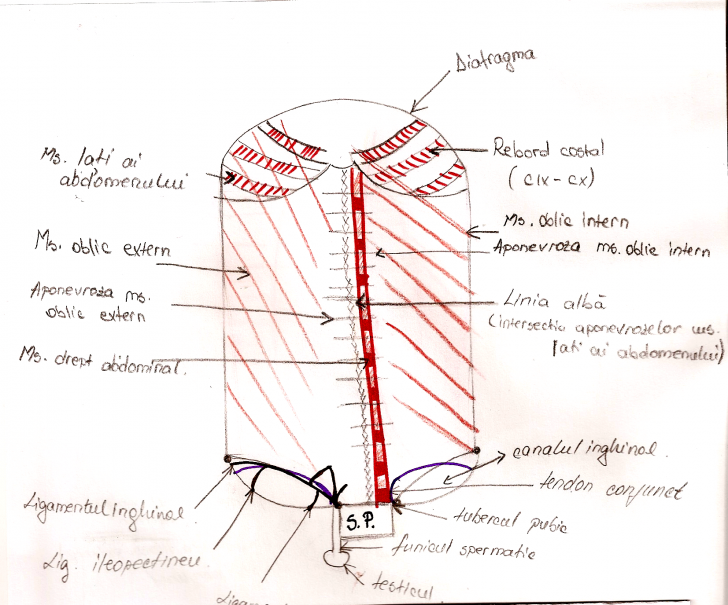 Diafragma
Ms. lati ai
abdomenului
Rebord costal
(CIX - CX)
Ms. oblic intern
Aponevroza ms. oblic intern
Ms. oblic extern
Aponevroza ms.
oblic extern
Linia albă
(intersectia aponevrozelor ms.
lati ai abdomenului)
Ms. drept abdominal.
canalul inghinal
tendon conjunct
Ligamentul inghinal
S.P.
tubercul pubic
Lig. ileopectineu.
funicul spermatic
testicul